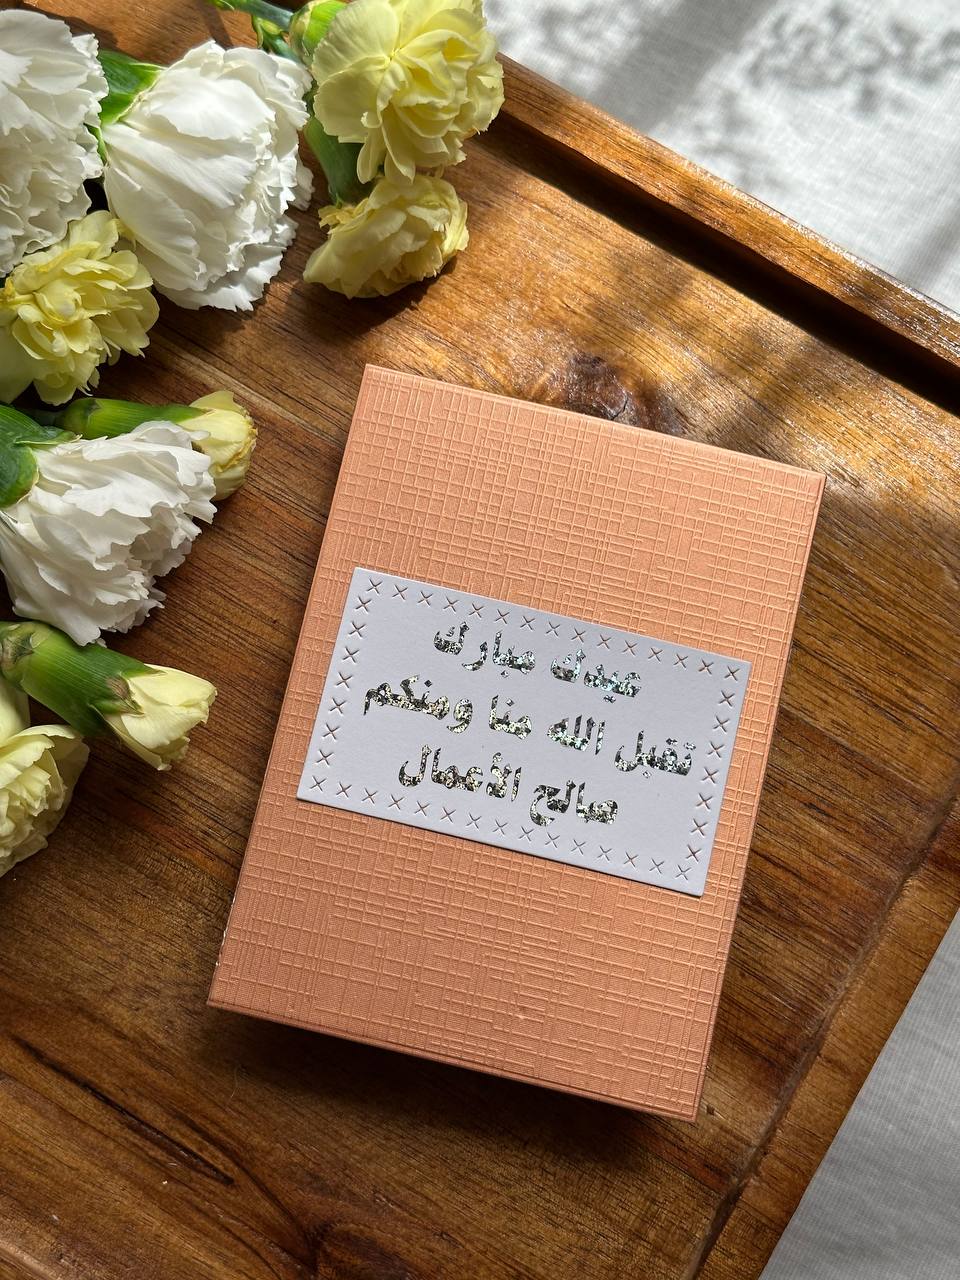 عيدك مبارك
تقبل الله منا ومنكم
صالح الأعمال